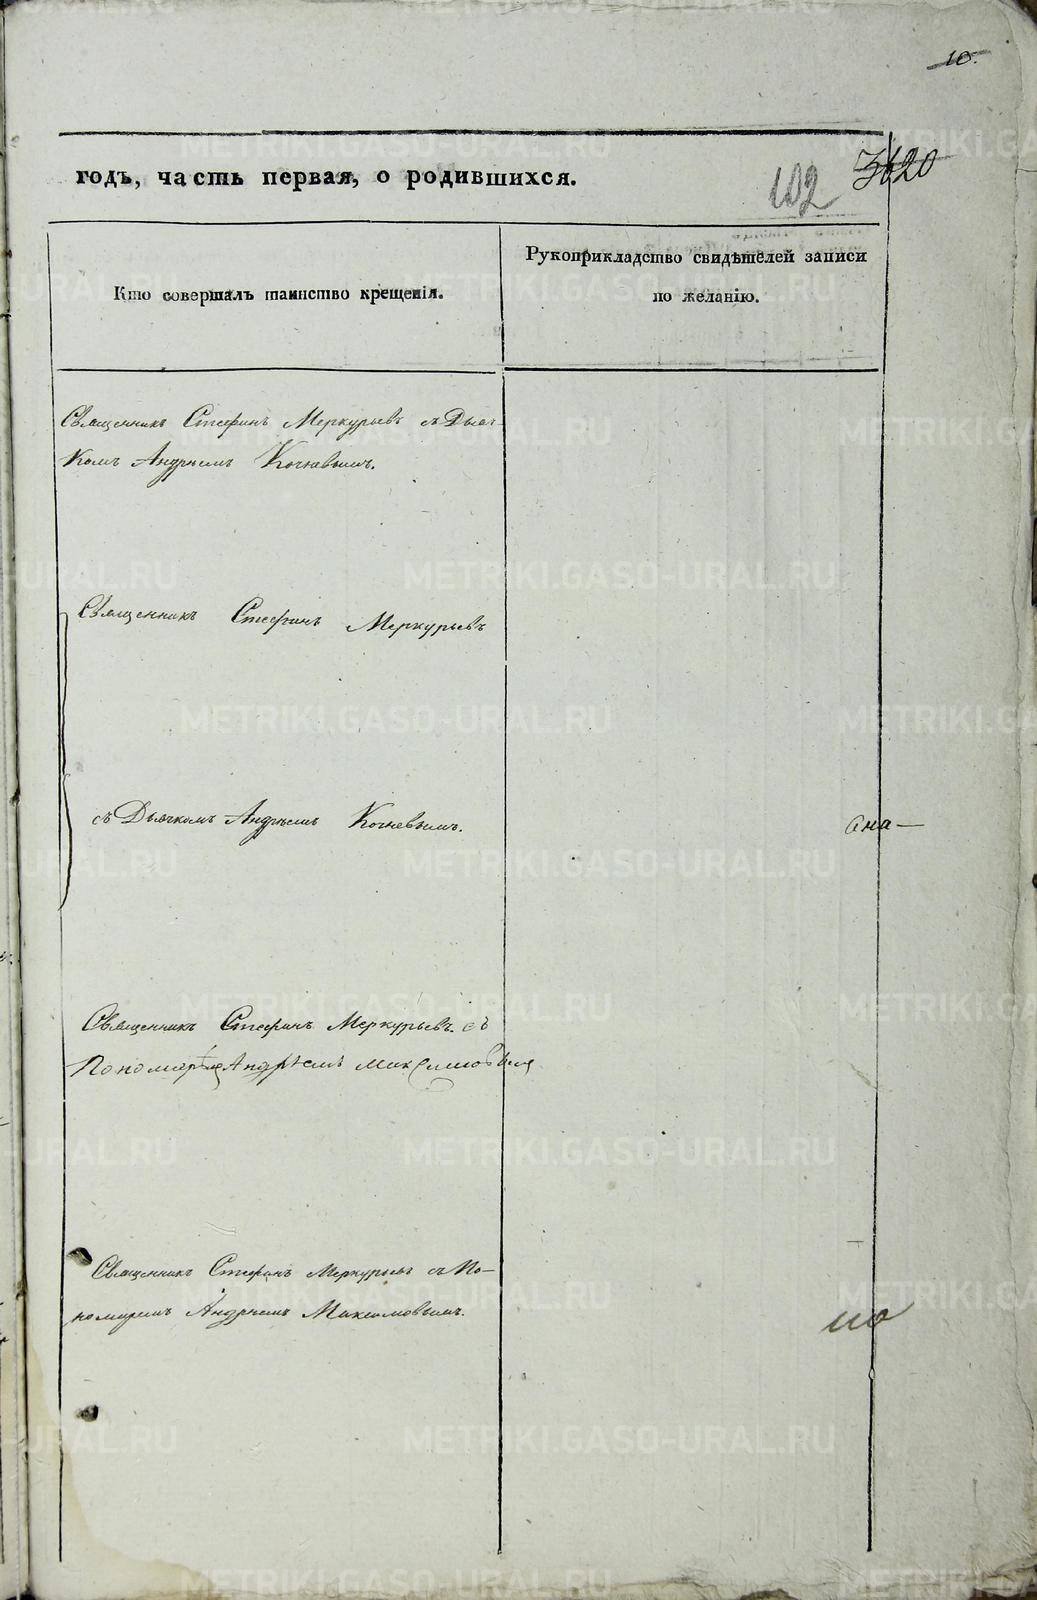 10.
годъ, часть первая, о родившихся.
102
3620
Кто совершалъ таинство крещенія.
Рукоприкладство свидѣтелей записи
по желанію.
Священникъ Стефанъ Меркурьевъ съ Дьяч-
комъ Андреемъ Кочневымъ.
Священникъ Стефанъ Меркурьевъ
съ Дьячкомъ Андреемъ Кочневымъ.
Священникъ Стефанъ Меркурьевъ съ
Пономаремъ Андреемъ Максимовымъ
Священникъ Стефанъ Меркурьевъ съ По-
номаремъ Андреемъ Максимовымъ.
METRIKI.GASO-URAL.RU